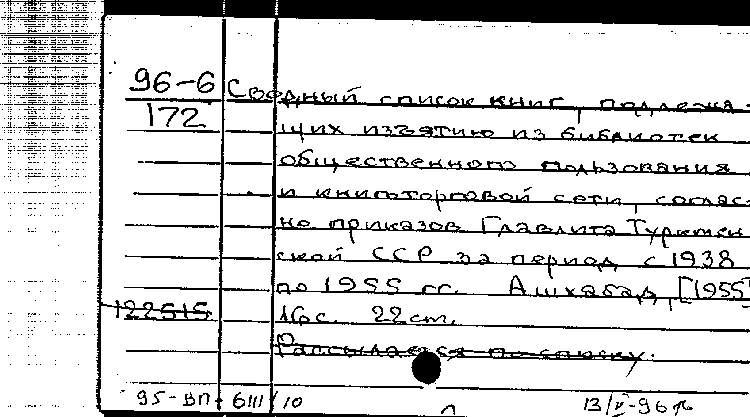 96-6 Сводный список книг, подлежа-
172 щих изъятию из библиотек
общественного пользования
и книготорговой сети, соглас-
но приказов Главлита Туркмен
ской ССР за период с 1938
по 1955 гг. Ашхабад, [1955]
122515 16с. 22cm.
Рассылается по списку.
95-ВП-6111/10 13/V-96